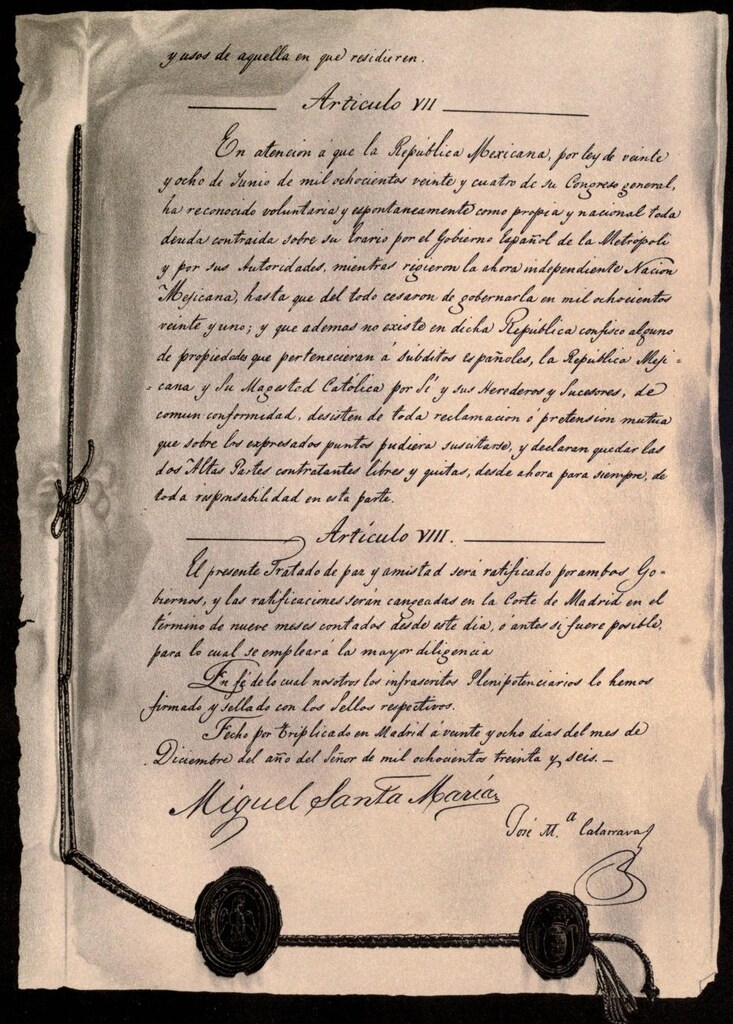 y usos de aquella en que residieren.
Artículo VII
En atencion á que la República Mexicana, por ley de veinte
y ocho de Junio de mil ochocientos veinte y cuatro de su Congreso general,
ha reconocido voluntaria y espontaneamente como propia y nacional toda
deuda contraida sobre su Erario por el Gobierno Español de la Metrópoli
y por sus Autoridades, mientras rigieron la ahora independiente Nacion
Mejicana, hasta que del todo cesaron de gobernarla en mil ochocientos
veinte y uno; y que ademas no existe en dicha República confisco alguno
de propiedades que pertenecieran á súbditos españoles, la República Meji-
-cana y Su Magestad Católica por Sí y sus Herederos y Sucesores, de
comun conformidad, desisten de toda reclamacion ó pretension mutua
que sobre los expresados puntos pudiera suscitarse, y declaran quedar las
dos Altas Partes contratantes libres y quitas, desde ahora para siempre, de
toda responsabilidad en esta parte.
Artículo VIII.
El presente Tratado de paz y amistad será ratificado por ambos Go-
biernos, y las ratificaciones serán cangeadas en la Corte de Madrid en el
término de nueve meses contados desde este dia, ó antes si fuere posible,
para lo cual se empleará la mayor diligencia
En fé de lo cual nosotros los infrascritos Plenipotenciarios lo hemos
firmado y sellado con los Sellos respectivos.
Fecho por triplicado en Madrid á veinte y ocho dias del mes de
Diciembre del año del Señor de mil ochocientos treinta y seis.—
Miguel Santa María
José M.ª Calatrava